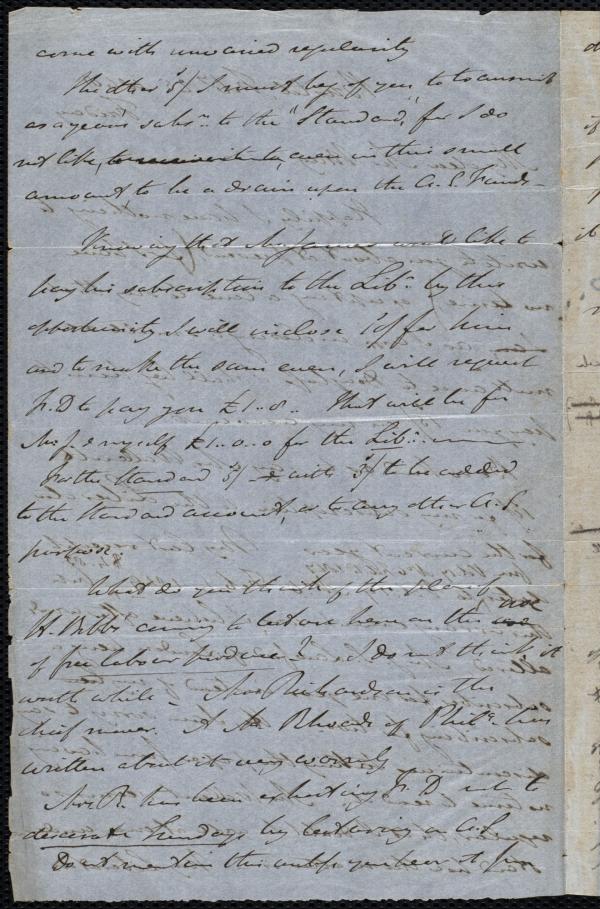 come with unvaried regularity
The other 5/ I must beg of you to transmit
as a years subsn. to the "Standard," for I do
not like, even in this small
amount to be a drain upon the A.S. Funds -
Knowing that Mr James would like to
pay his subscription to the Libr. by this
opportunity I will inclose 10/ for him
and to make the sum even, I will request
F.D to pay you £1..8.. That will be for
Mr J. & myself £1..0..0 for the Libr.
For the Standard 5/ with 3/ to be added
to the Standard account, or to any other A.S.
purpose.
What do you think of this plan of
H. Bibbs coming to lecture here, on the use
of free labour produce? I do not think it
worth while - Mrs Richardson is the
chief mover. A Mr Rhoads of Phila. has
written about it very warmly
Mrs R. has been exhorting F.D. not to
desecrate Sundays by lecturing on A.S.
Do not mention this unless you hear it from